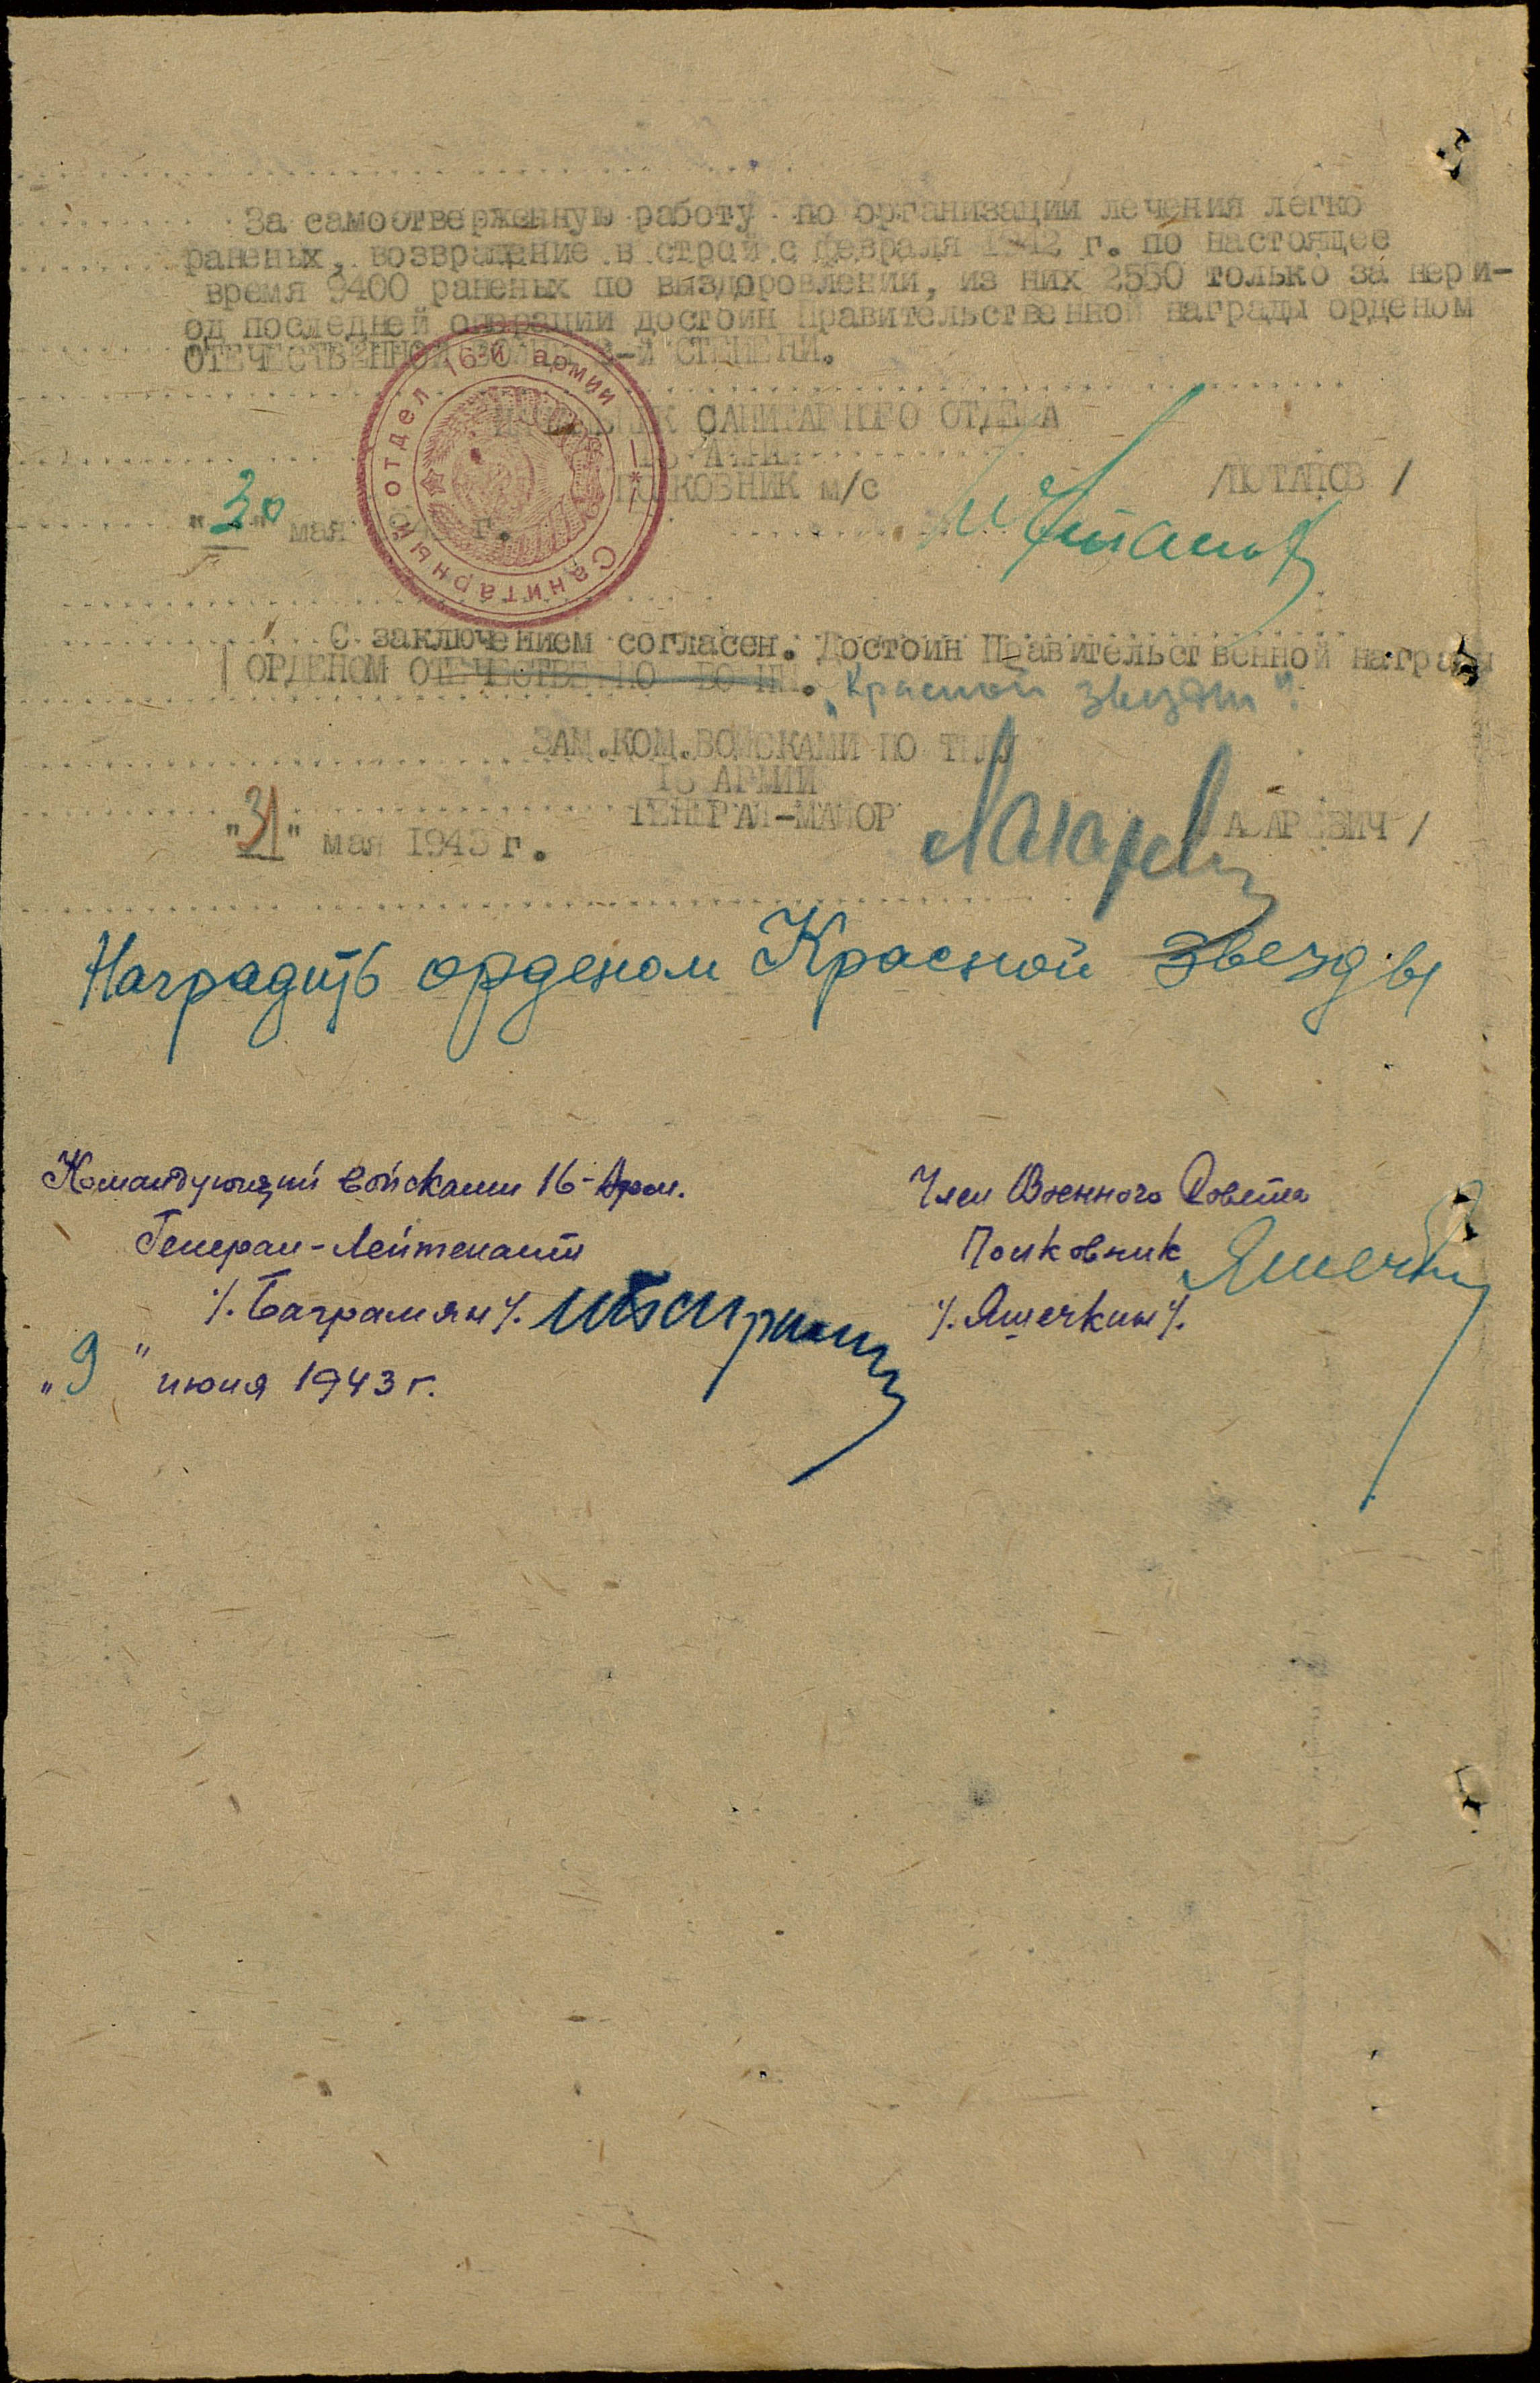 За самоотверженную работу по организации лечения легко
раненых, возвращение в строй с февраля 1942 г. по настоящее
время 9400 раненых по выздоровлении, из них 2550 только за пери-
од последней операции достоин Правительственной награды орденом
ОТЕЧЕСТВЕННОЙ ВОЙНЫ 2-й СТЕПЕНИ.
НАЧАЛЬНИК САНИТАРНОГО ОТДЕЛА
16 АРМИИ
ПОЛКОВНИК м/с /ПОТАПОВ /
"30" мая г.
Санитарный отдел 16-й армии
С заключением согласен. Достоин Правительственной награды
ОРДЕНОМ ОТЕЧЕСТВЕННО ВО НЫ. "Красной звезды".
ЗАМ.КОМ.ВОЙСКАМИ ПО ТЫЛУ
16 АРМИИ
ГЕНЕРАЛ-МАЙОР ЛАЗАРЕВИЧ /
"31" мая 1943 г.
Наградить орденом Красной Звезды
Командующий войсками 16-Арм.
Генерал-Лейтенант
/. Баграмян /.
"9" июня 1943 г.
Член Военного Совета
Полковник
/. Яшечкин /.